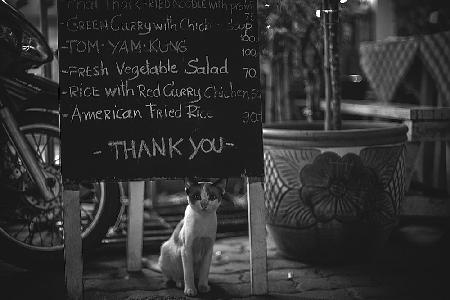 Phat Thai FRIED NOODLE with
-GREEN CURRY with Chick Soup
-TOM·YAM·KUNG 100
-FRESH Vegetable Salad 70
-RICE with Red Curry Chicken
-American Fried Rice
-THANK YOU-